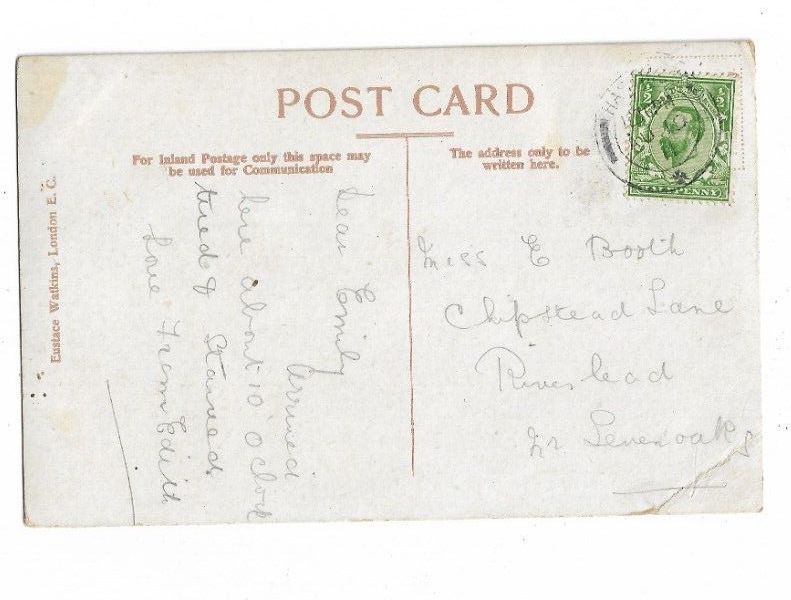 POST CARD
For Inland Postage only this space may
be used for Communication
The address only to be
written here.
Eustace Watkins, London E. C.
Dear Emily
arrived
here about 10 oclock
tired & Starved.
Love From Edith
Miss E Booth
Chipstead Lane
Riverhead
Nr Sevenoaks
HALF PENNY